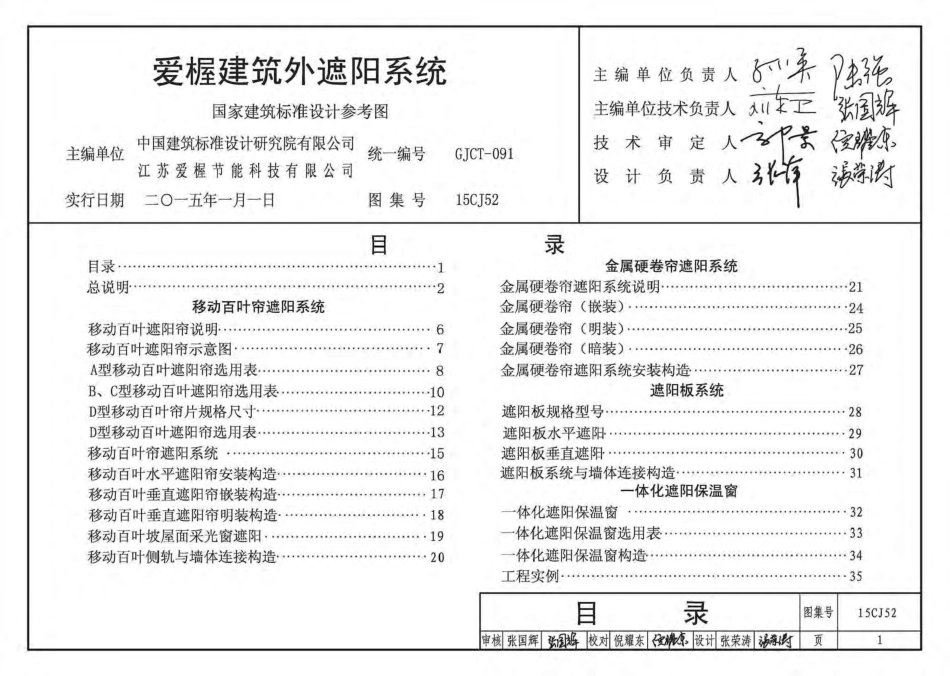 爱楃建筑外遮阳系统
国家建筑标准设计参考图
主编单位 中国建筑标准设计研究院有限公司
江苏爱楃节能科技有限公司
统一编号 GJCT-091
实行日期 二〇一五年一月一日 图集号 15CJ52
主编单位负责人
主编单位技术负责人
技术审定人
设计负责人
目录
目录 1
总说明 2
移动百叶帘遮阳系统
移动百叶遮阳帘说明 6
移动百叶遮阳帘示意图 7
A型移动百叶遮阳帘选用表 8
B、C型移动百叶遮阳帘选用表 10
D型移动百叶帘片规格尺寸 12
D型移动百叶遮阳帘选用表 13
移动百叶帘遮阳系统 15
移动百叶水平遮阳帘安装构造 16
移动百叶垂直遮阳帘嵌装构造 17
移动百叶垂直遮阳帘明装构造 18
移动百叶坡屋面采光窗遮阳 19
移动百叶侧轨与墙体连接构造 20
金属硬卷帘遮阳系统
金属硬卷帘遮阳系统说明 21
金属硬卷帘（嵌装） 24
金属硬卷帘（明装） 25
金属硬卷帘（暗装） 26
金属硬卷帘遮阳系统安装构造 27
遮阳板系统
遮阳板规格型号 28
遮阳板水平遮阳 29
遮阳板垂直遮阳 30
遮阳板系统与墙体连接构造 31
一体化遮阳保温窗
一体化遮阳保温窗 32
一体化遮阳保温窗选用表 33
一体化遮阳保温窗构造 34
工程实例 35
目录 图集号 15CJ52
审核 张国辉 张国辉 校对 倪耀东 倪耀东 设计 张荣涛 張荣涛 页 1